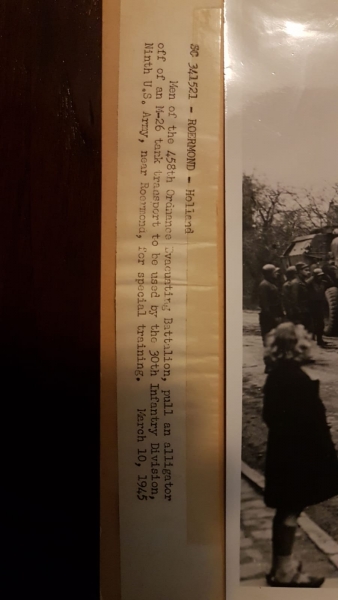 SC 341521 - ROERMOND - Holland
Men of the 458th Ordnance Evacuating Battalion, pull an alligator
off of an M-26 tank transport to be used by the 30th Infantry Division,
Ninth U.S. Army, near Roermond, for special training. March 10, 1945